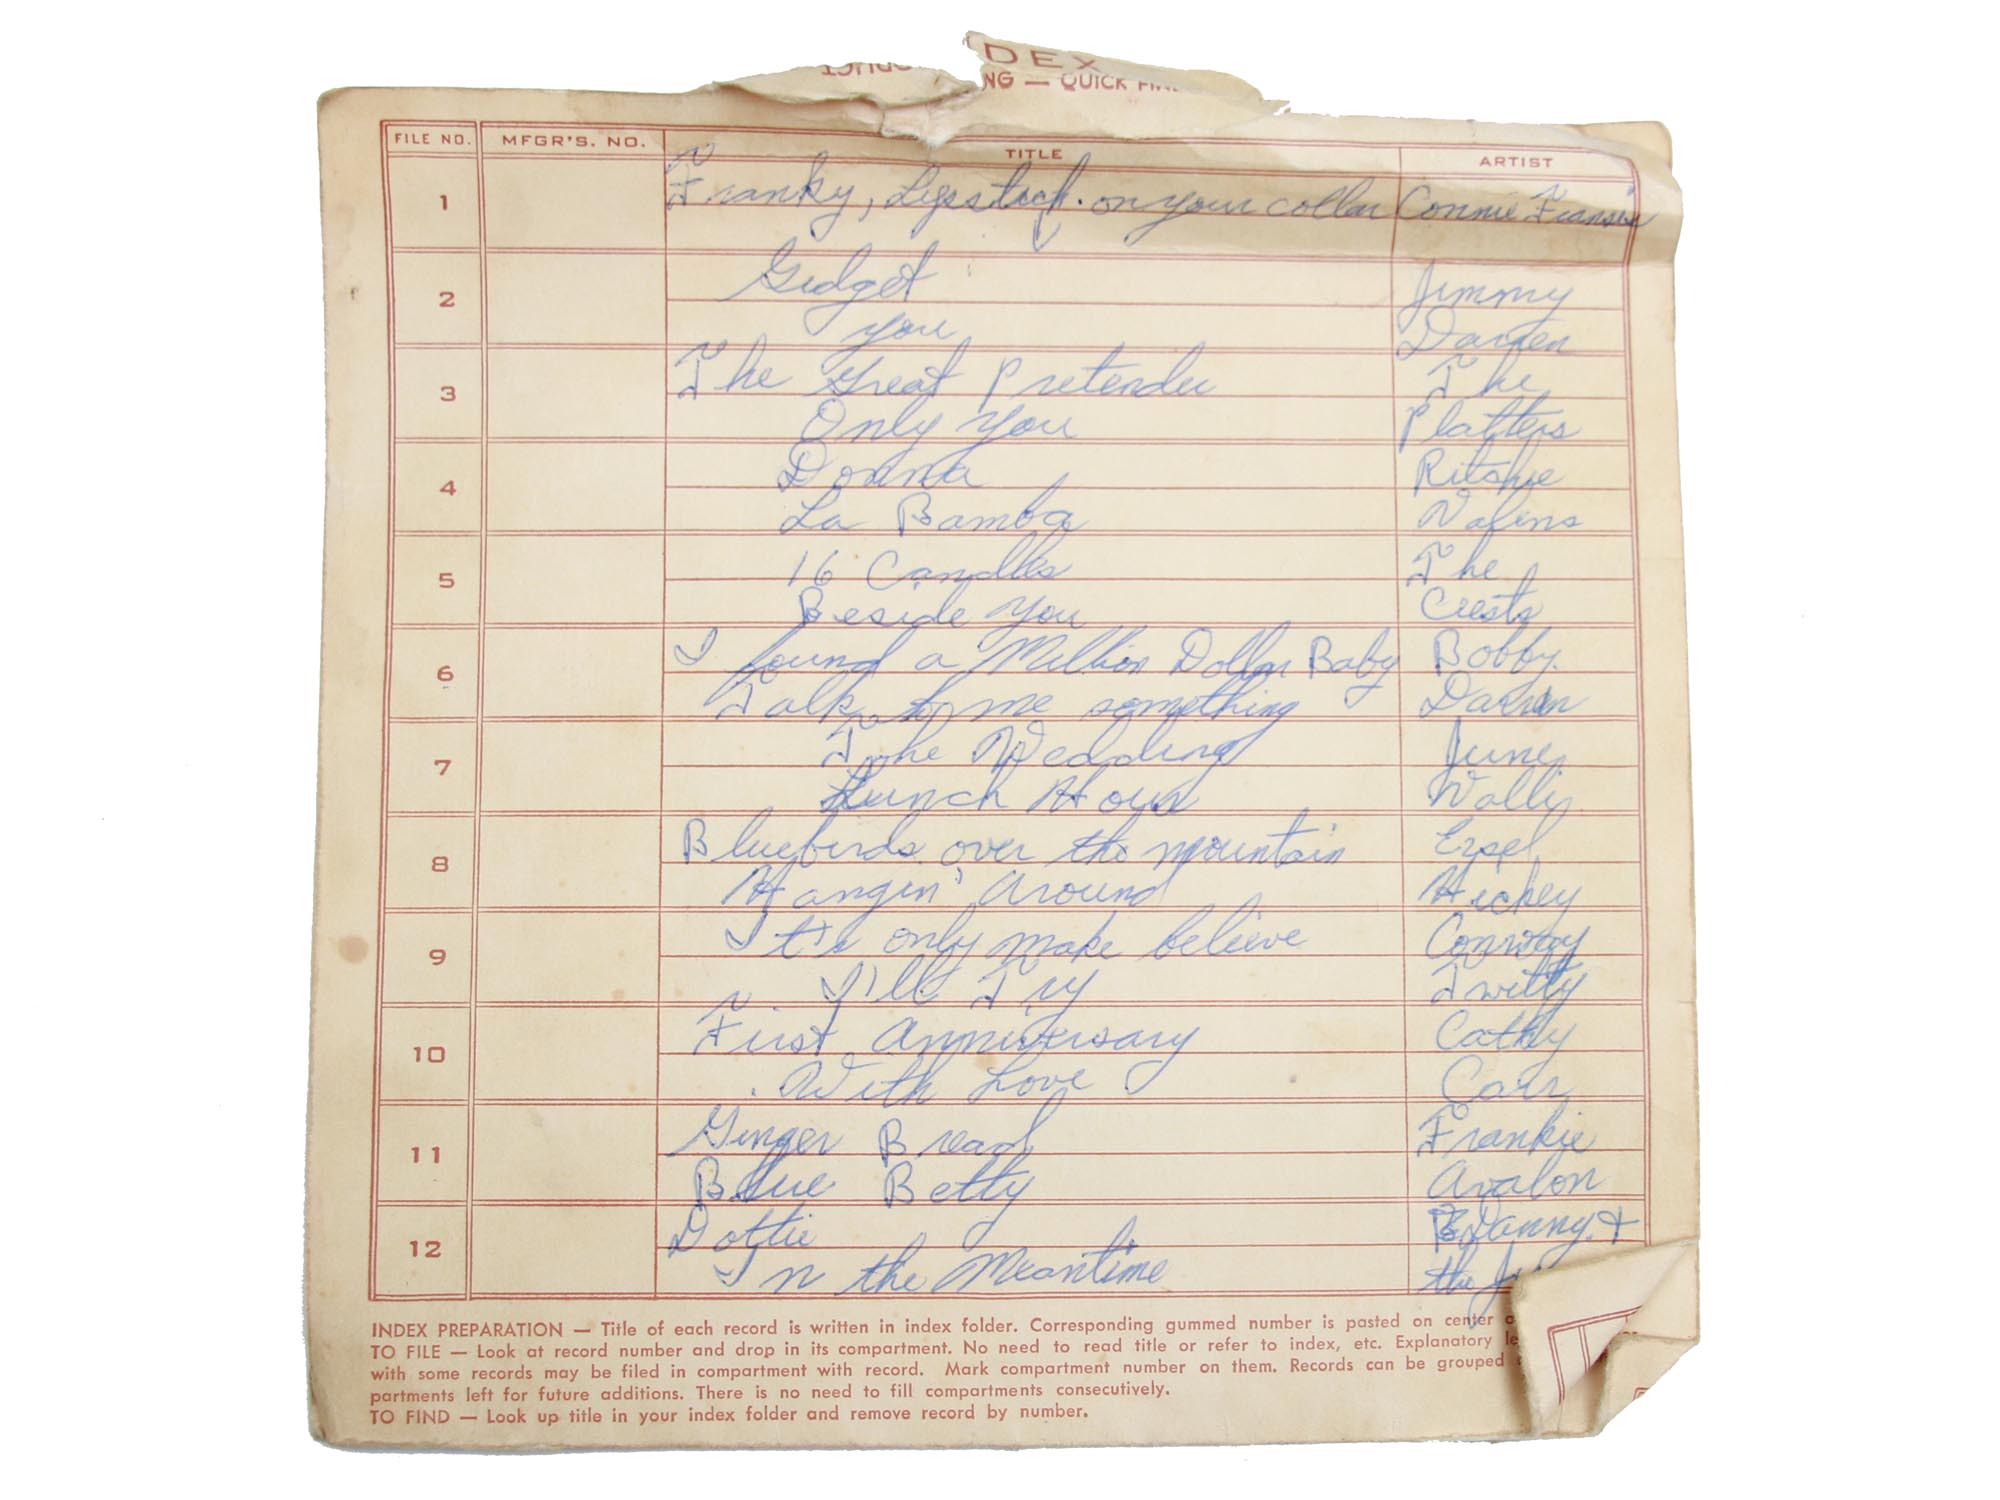 DEX
NG — QUICK
FILE NO. MFGR'S. NO. TITLE ARTIST
1 Franky, Lipstick on your collar Connie Fransis
2 Gidget Jimmy
you Darren
3 The Great Pretender The
Only you Platters
4 Donna Ritshie
La Bamba Valens
5 16 Candles The
Beside you Crests
6 I found a Million Dollar Baby Bobby
Talk to me something Darin
7 The Wedding June
Lunch Hour Wallis
8 Bluebirds over the mountain Ersel
Hangin' Around Hickey
9 It's only make believe Conway
I'll Try Twitty
10 First Anniversary Cathy
With Love Carr
11 Ginger Bread Frankie
Blue Betty Avalon
12 Dottie Danny &
In the Meantime the
INDEX PREPARATION — Title of each record is written in index folder. Corresponding gummed number is pasted on center
TO FILE — Look at record number and drop in its compartment. No need to read title or refer to index, etc. Explanatory
with some records may be filed in compartment with record. Mark compartment number on them. Records can be grouped
partments left for future additions. There is no need to fill compartments consecutively.
TO FIND — Look up title in your index folder and remove record by number.